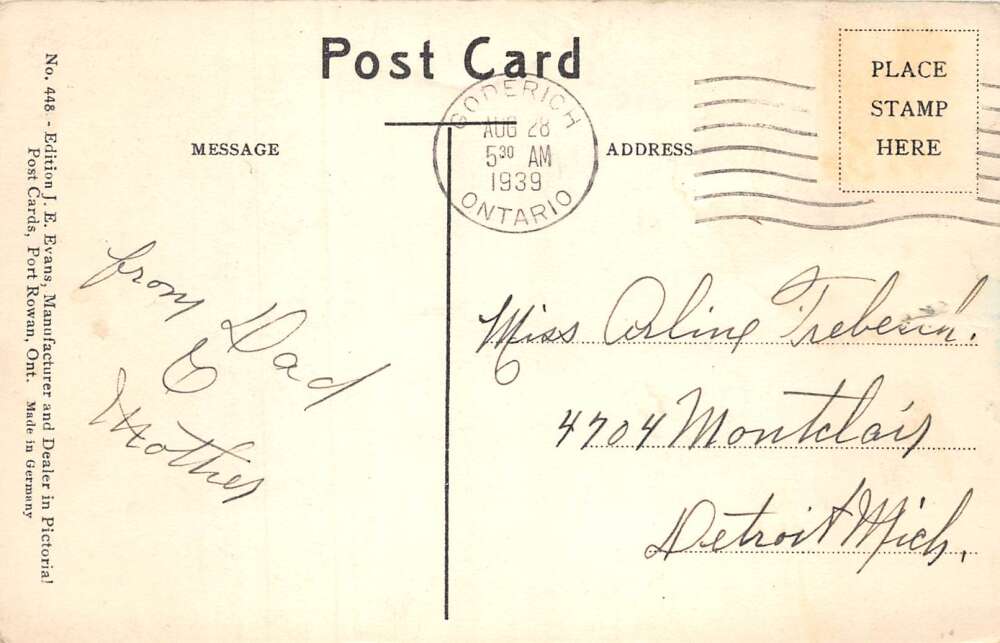 Post Card
PLACE
STAMP
HERE
GODERICH
AUG 28
5 30 AM
1939
ONTARIO
MESSAGE
ADDRESS
from Dad
&
Mother
Miss Arline
4704 Montclair
Detroit Mich.
No. 448. - Edition J. E. Evans, Manufacturer and Dealer in Pictorial
Post Cards, Port Rowan, Ont. Made in Germany